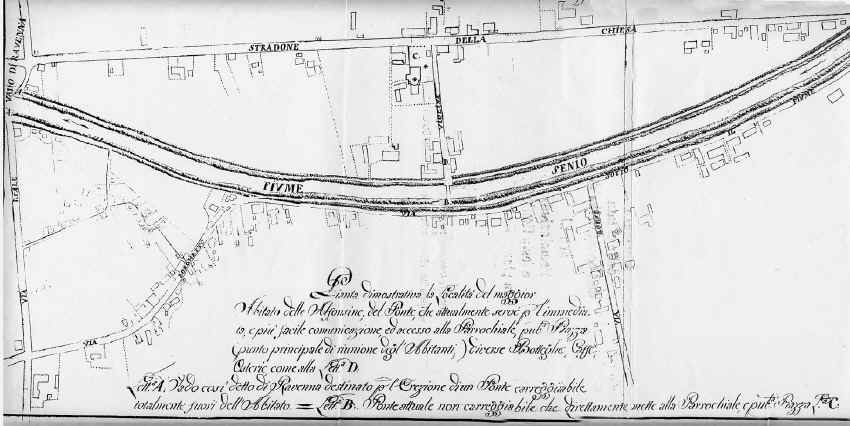 STRADONE
DELLA
CHIESA
VADO DI RAVENNA
C.
FIUME
SENIO
B.
VIA
SOTTO
IL
FIUME
VIA
VIA
VIA
Pianta dimostrativa la Località del maggior
Abitato delle Alfonsine, del Ponte, che attualmente serve p l'immedia-
ta, e più facile comunicazione ed accesso alla Parrochiale, pub.ca Piazza
(punto principale di riunione degl'Abitanti) diverse Botteghe, Caffè
Osterie come alla Lett.a D.
Lett.a A. Vado così detto di Ravenna destinato p l'Erezione di un Ponte carreggiabile
totalmente fuori dell'Abitato = Lett.a B. Ponte attuale non carreggiabile che direttamente mette alla Parrochiale, e pub.ca Piazza C.